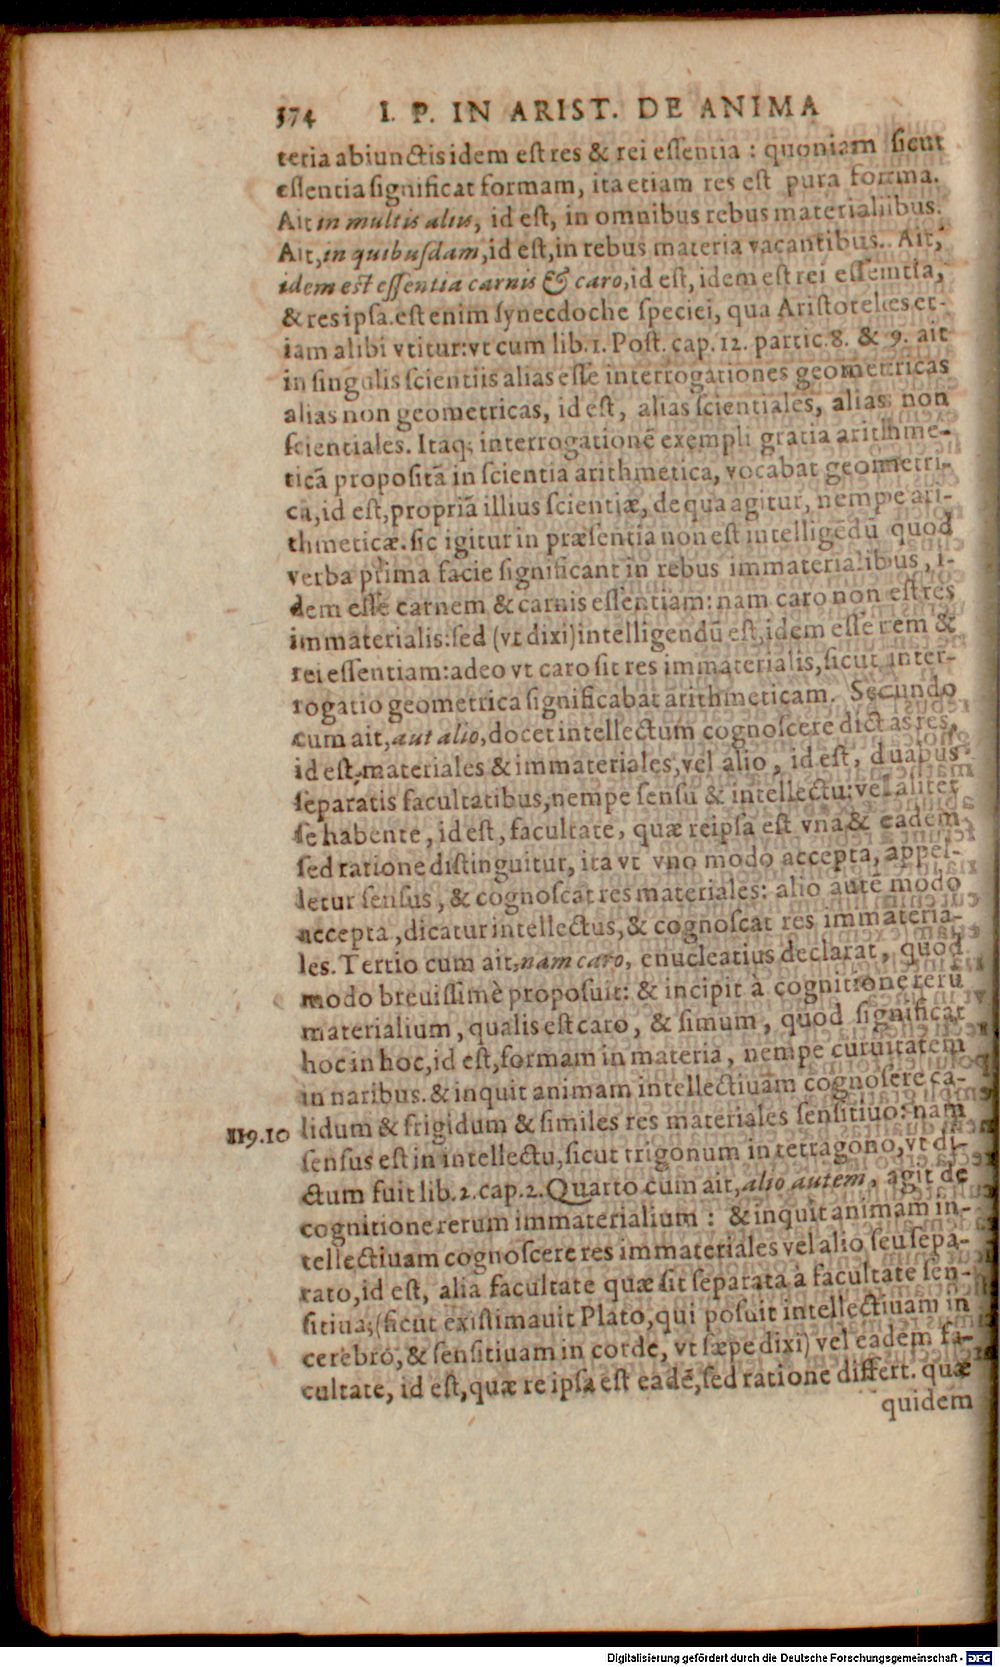 374 I. P. IN ARIST. DE ANIMA
teria abiunctis idem est res & rei essentia : quoniam sicut
essentia significat formam, ita etiam res est pura forma.
Ait in multis aliis, id est, in omnibus rebus materialibus.
Ait, in quibusdam, id est, in rebus materia vacantibus. Ait,
idem est essentia carnis & caro, id est, idem est rei essentia,
& res ipsa. est enim synecdoche speciei, qua Aristoteles et-
iam alibi vtitur: vt cum lib. 1. Post. cap. 12. partic. 8. & 9. ait
in singulis scientiis alias esse interrogationes geometricas
alias non geometricas, id est, alias scientiales, alias non
scientiales. Itaq; interrogationē exempli gratia arithme-
ticā propositā in scientia arithmetica, vocabat geometri-
cā, id est, propriā illius scientiæ, de qua agitur, nempe ari-
thmeticæ. sic igitur in præsentia non est intelligēdū quod
verba prima facie significant in rebus immaterialibus, i-
dem esse carnem & carnis essentiam: nam caro non est res
immaterialis: sed (vt dixi) intelligendū est, idem esse rem &
rei essentiam: adeo vt caro sit res immaterialis, sicut inter-
rogatio geometrica significabat arithmeticam. Secundo
cum ait, aut alio, docet intellectum cognoscere dictas res,
id est, materiales & immateriales, vel alio, id est, duabus
separatis facultatibus, nempe sensu & intellectu: vel aliter
se habente, id est, facultate, quæ reipsa est vna & eadem
sed ratione distinguitur, ita vt vno modo accepta, appel-
letur sensus, & cognoscat res materiales: alio autē modo
accepta, dicatur intellectus, & cognoscat res immateria-
les. Tertio cum ait, nam caro, enucleatius declarat, quod
modo breuissimè proposuit: & incipit à cognitione rerū
materialium, qualis est caro, & simum, quod significat
hoc in hoc, id est, formam in materia, nempe curuitatem
in naribus. & inquit animam intellectiuam cognoscere ca-
119.10 lidum & frigidum & similes res materiales sensitiuo: nam
sensus est in intellectu, sicut trigonum in tetragono, vt di-
ctum fuit lib. 2. cap. 2. Quarto cum ait, alio autem, agit de
cognitione rerum immaterialium : & inquit animam in-
tellectiuam cognoscere res immateriales vel alio seu sepa-
rato, id est, alia facultate quæ sit separata à facultate sen-
sitiua; (sicut existimauit Plato, qui posuit intellectiuam in
cerebro, & sensitiuam in corde, vt sæpe dixi) vel eadem fa-
cultate, id est, quæ re ipsa est eadē, sed ratione differt. quæ
quidem
Digitalisierung gefördert durch die Deutsche Forschungsgemeinschaft - DFG